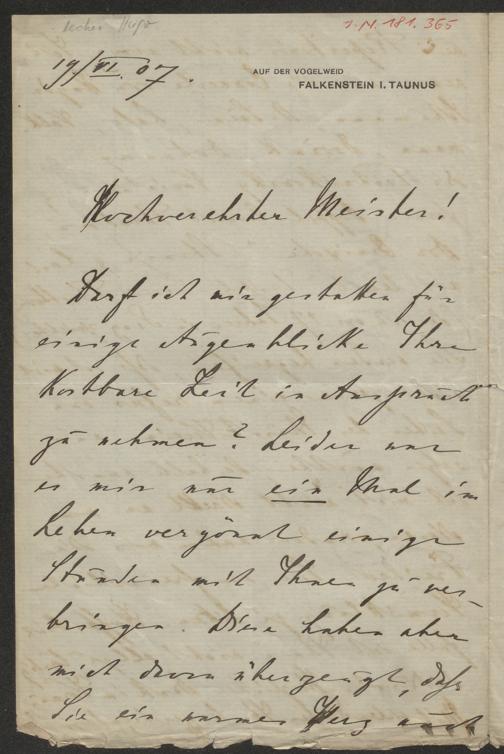 Becher Hugo
I.N. 181.365
19/VI. 07.
AUF DER VOGELWEID
FALKENSTEIN I. TAUNUS
Hochverehrter Meister!
Darf ich mir gestatten für
einige Augenblicke Ihre
kostbare Zeit in Anspruch
zu nehmen? Leider war
es mir nur ein Mal im
Leben vergönnt einige
Stunden mit Ihnen zu ver-
bringen. Diese haben aber
mich davon überzeugt, daß
Sie ein warmes Herz auch